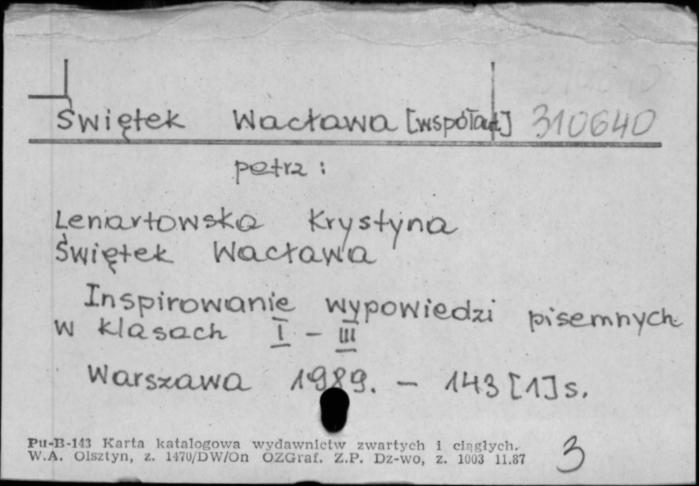 Świętek Wacława [współaut] 310640
patrz:
Lenartowska Krystyna
Świętek Wacława
Inspirowanie wypowiedzi pisemnych
w klasach I - III
Warszawa 1989. - 143 [1] s.
Pu-B-143 Karta katalogowa wydawnictw zwartych i ciągłych.
W.A. Olsztyn, z. 1470/DW/On OZGraf. Z.P. Dz-wo, z. 1003 11.87
3